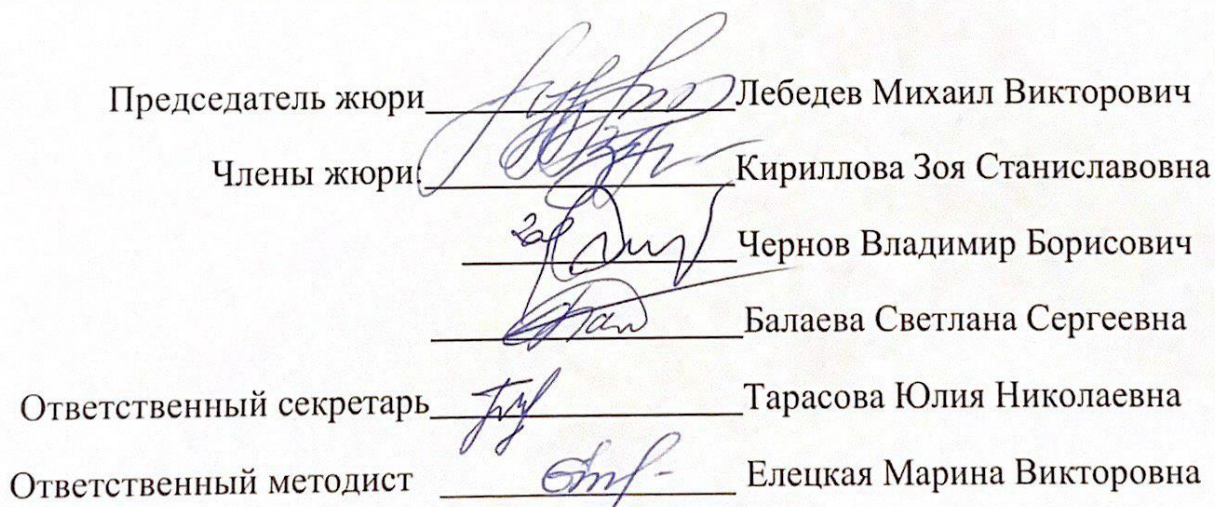 Председатель жюри Лебедев Михаил Викторович
Члены жюри: Кириллова Зоя Станиславовна
Чернов Владимир Борисович
Балаева Светлана Сергеевна
Ответственный секретарь Тарасова Юлия Николаевна
Ответственный методист Елецкая Марина Викторовна